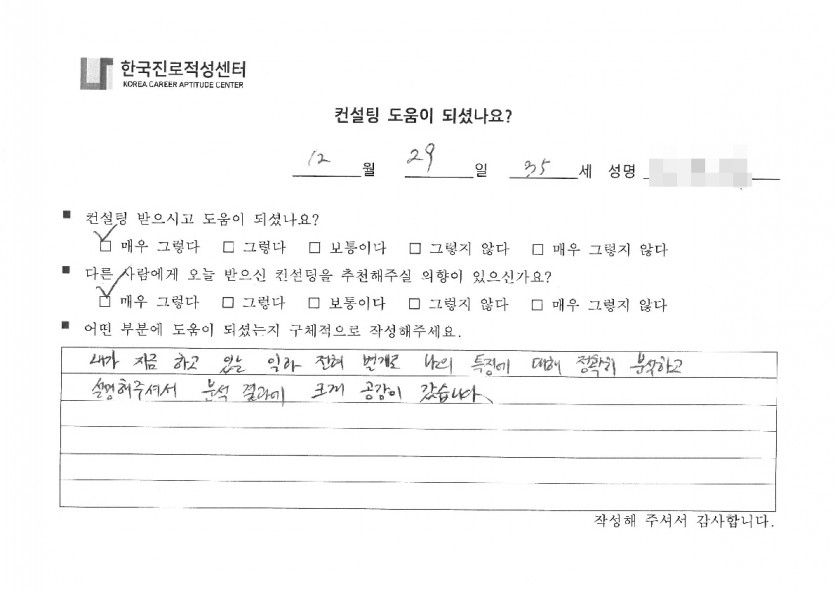 한국진로적성센터
KOREA CAREER APTITUDE CENTER
컨설팅 도움이 되셨나요?
12 월 29 일 35 세 성명
■ 컨설팅 받으시고 도움이 되셨나요?
☑ 매우 그렇다 □ 그렇다 □ 보통이다 □ 그렇지 않다 □ 매우 그렇지 않다
■ 다른 사람에게 오늘 받으신 컨설팅을 추천해주실 의향이 있으신가요?
☑ 매우 그렇다 □ 그렇다 □ 보통이다 □ 그렇지 않다 □ 매우 그렇지 않다
■ 어떤 부분에 도움이 되셨는지 구체적으로 작성해주세요.
내가 지금 하고 있는 일과 전혀 별개로 나의 특징에 대해 정확히 분석하고
설명해주셔서 분석 결과에 크게 공감이 갔습니다.
작성해 주셔서 감사합니다.